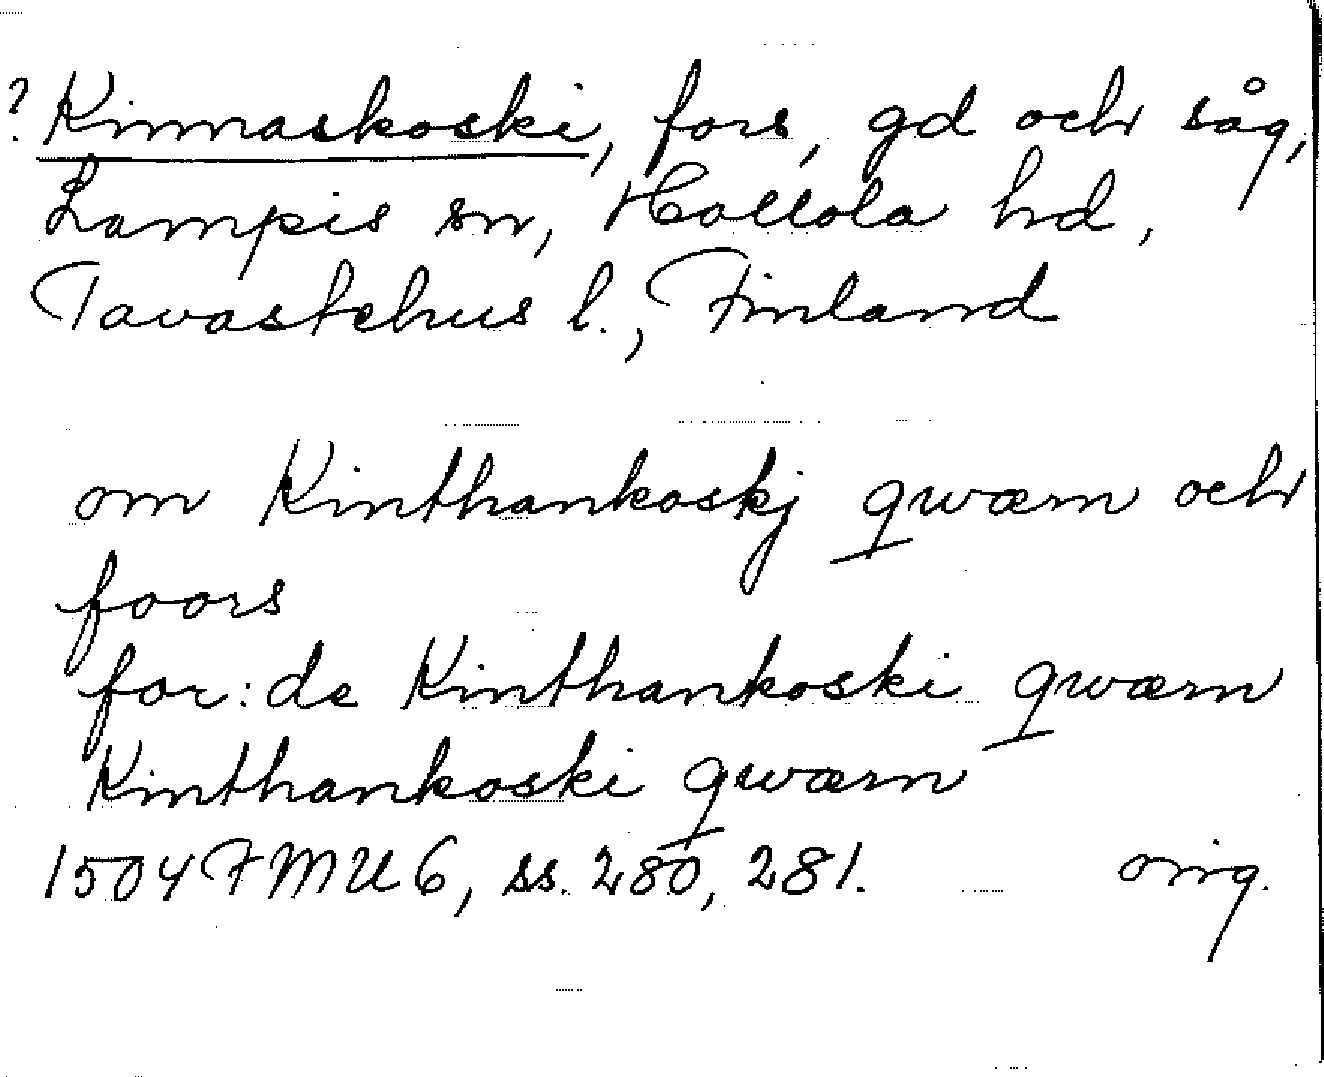 ? Kinnaskoski, fors, gd och såg,
Lampis sn, Hollola hd,
Tavastehus l., Finland
om Kinthankoskj qwærn och
foors
for: de Kinthankoski qwærn
Kinthankoski qwærn
1504 FMU 6, ss. 280, 281. orig.